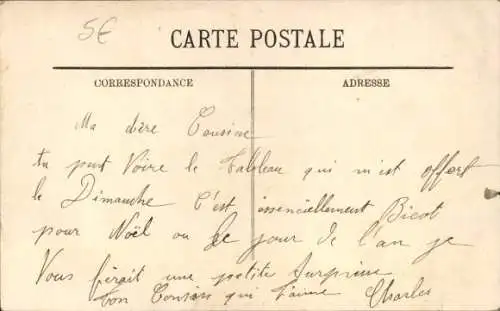 5€
CARTE POSTALE
CORRESPONDANCE
ADRESSE
Ma chère Cousine
tu peut Voire le tableau qui m'est offert
le Dimanche C'est essenciellement Bicot
pour Noël ou le jour de l'an je
Vous ferait une petite surprise
ton Cousin qui t'aime Charles